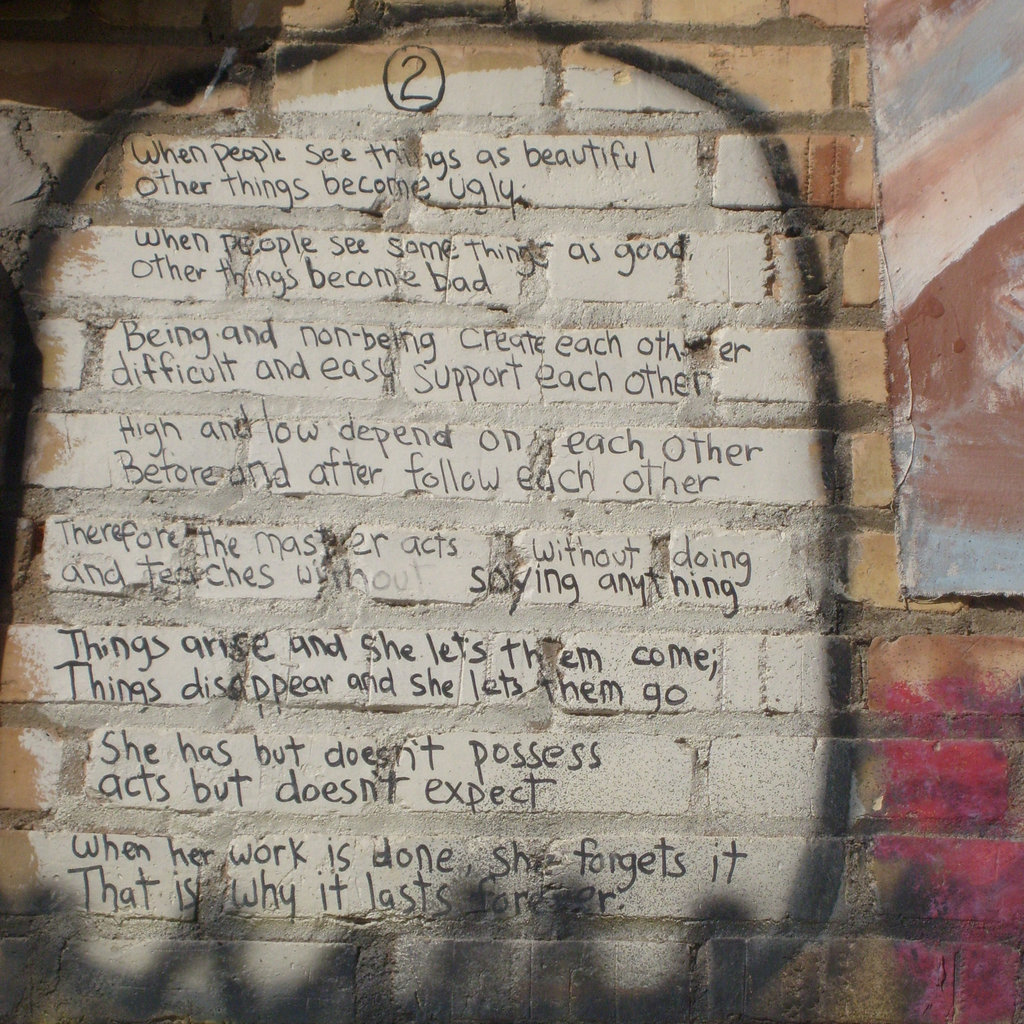 2
When people see things as beautiful
other things become ugly.
When people see some things as good,
other things become bad
Being and non-being create each other
difficult and easy support each other
High and low depend on each other
Before and after follow each other
Therefore the master acts without doing
and teaches without saying anything
Things arise and she lets them come;
Things disappear and she lets them go
She has but doesn't possess
acts but doesn't expect
When her work is done, she forgets it
That is why it lasts forever.